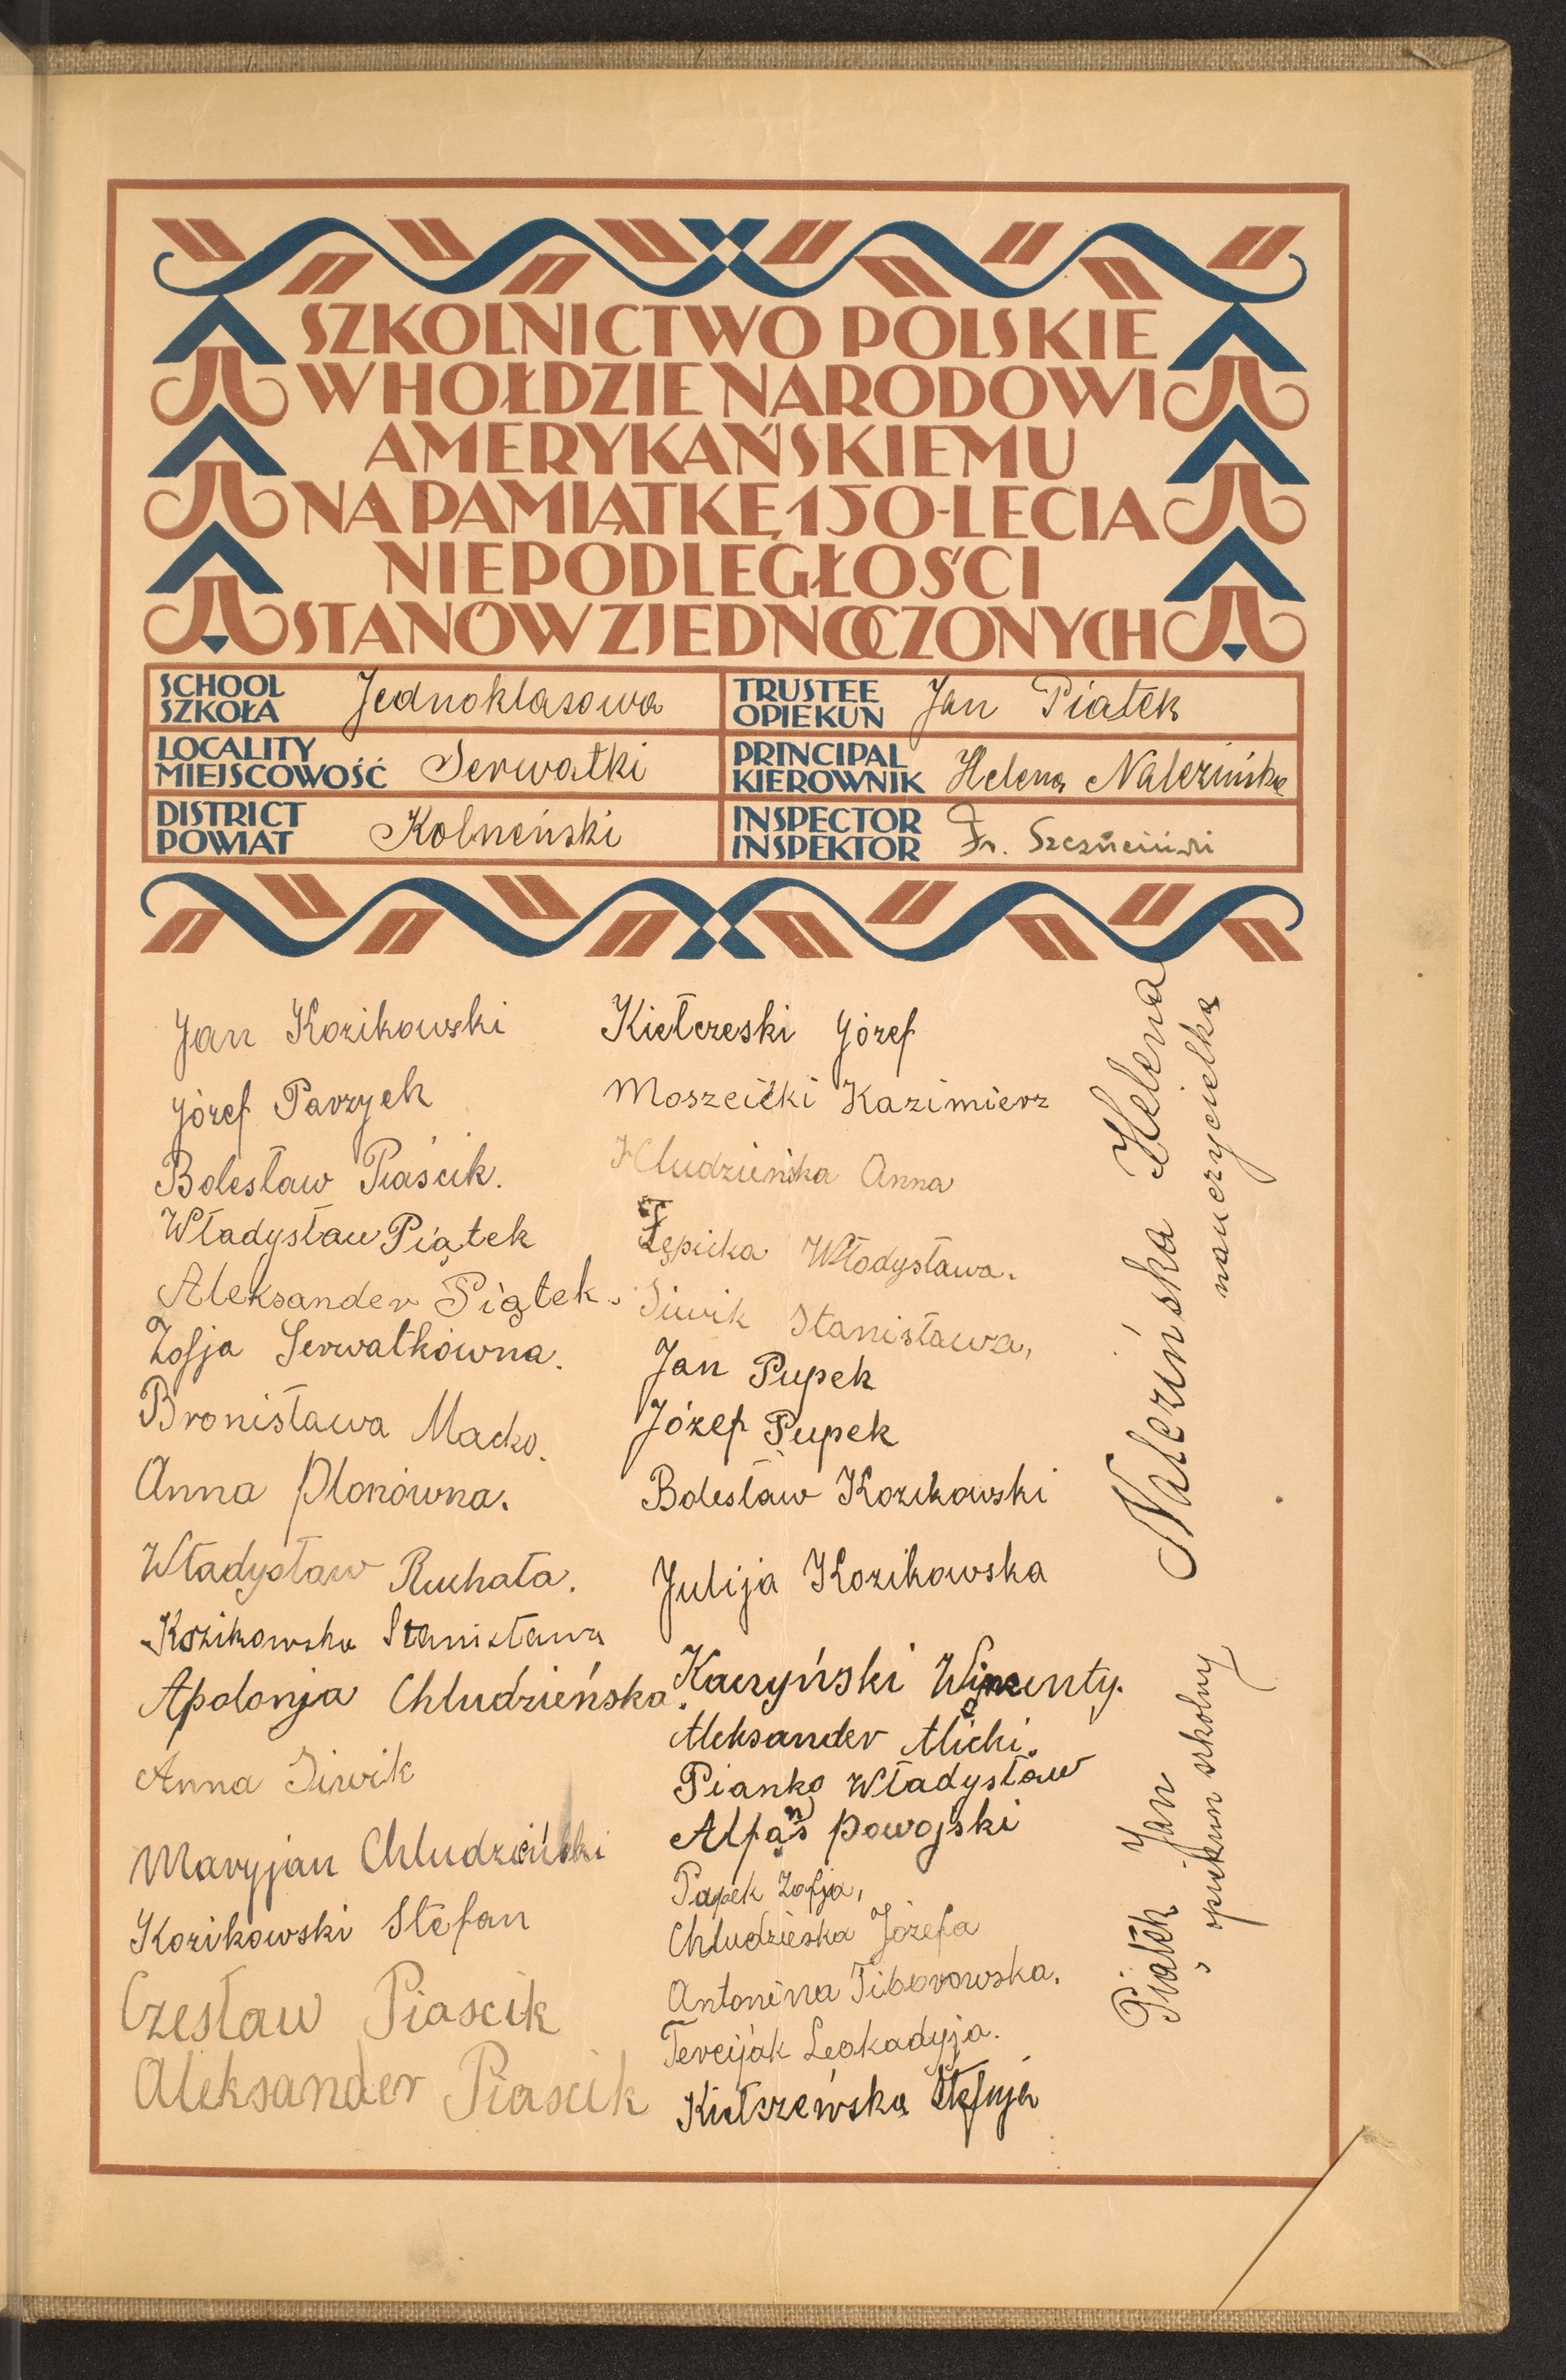 SZKOLNICTWO POLSKIE
W HOŁDZIE NARODOWI
AMERYKAŃSKIEMU
NA PAMIĄTKĘ 150-LECIA
NIEPODLEGŁOŚCI
STANÓW ZJEDNOCZONYCH
SCHOOL
SZKOŁA
Jednoklasowa
TRUSTEE
OPIEKUN
Jan Piatek
LOCALITY
MIEJSCOWOŚĆ
Serwatki
PRINCIPAL
KIEROWNIK
Helena Nalezińska
DISTRICT
POWIAT
Kolneński
INSPECTOR
INSPEKTOR
Fr.
Jan Kozikowski
Józef Parzych
Bolesław Piaścik.
Władysław Piątek
Aleksander Piątek.
Zofja Serwatkówna.
Bronisława Macko.
Anna Plonówna.
Władysław Ruchała.
Kozikowska Stanisława
Apolonja Chludzieńska.
Anna Siwik
Maryjan Chludziński
Kozikowski Stefan
Czesław Piascik
Aleksander Piascik
Kiełczeski Józef
Moszcicki Kazimierz
Hludzieńska Anna
Łępicka Włodysława.
Siwik Stanisława,
Jan Pupek
Józef Pupek
Bolesław Kozikowski
Julija Kozikowska
Kaczyński Wincenty.
Aleksander Alicki.
Pianko Władysław
Powojski
Pupek Zofja,
Chludzieska Józefa
Antonina Tiborowska.
Tercijak Leokadyja.
Kiełszewska Stefnja
Nalezińska Helena
nauczycielka
Piatek Jan
opiekun szkolny